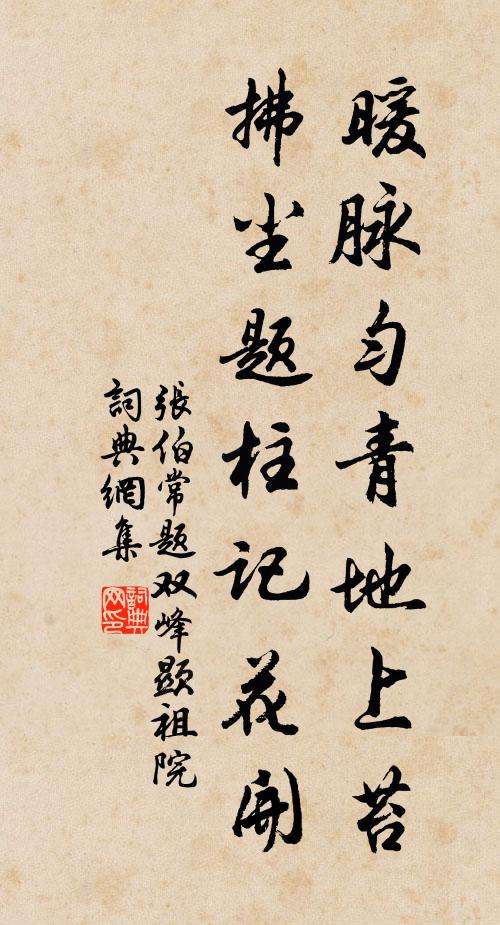 暖脉匀青地上苔
拂尘题柱记花开
張伯常题双峰顯祖院
詞典網集
詞典网印